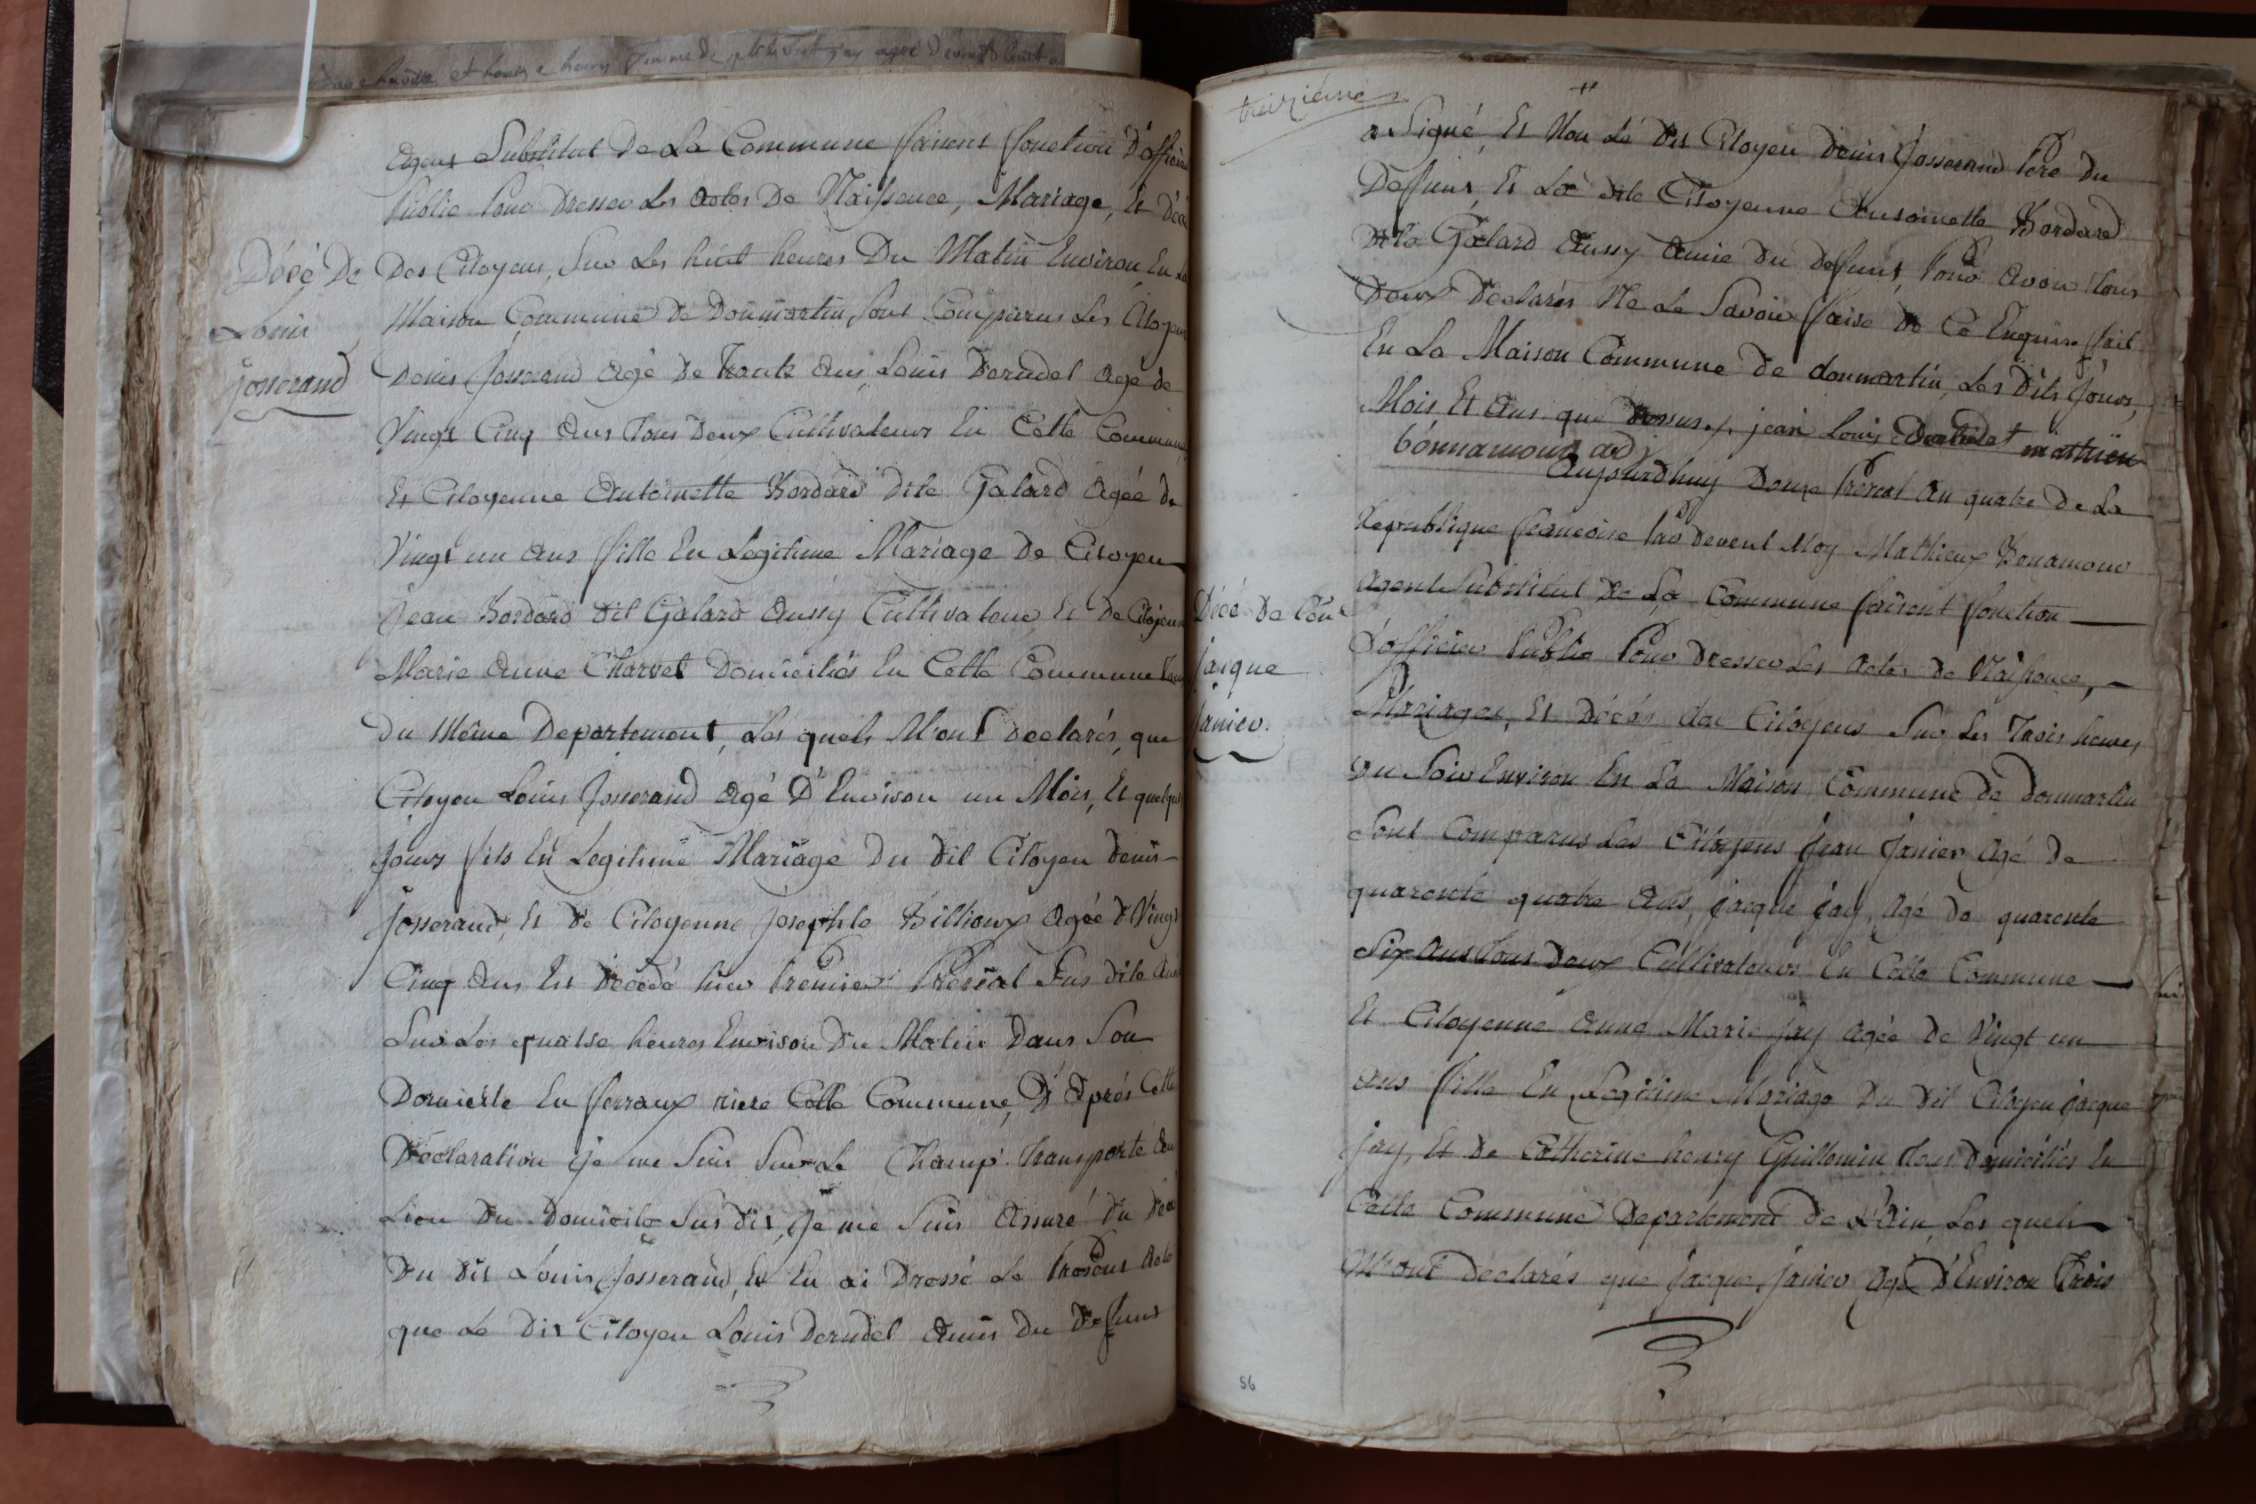 agent Substitut De La Commune faisent fonction D'officier
Public Pour Dresser Les actes De Naissence, Mariage, Et Décé
Décé De
Louis
josserand
Des Citoyens, Sur Les huit heures Du Matin Environ, En La
Maison Commune de Donmartin, Sont Comparus Les Citoyens
Denis Josserand Agé De Trente Ans, Louis Derudel Agé de
Vingt Cinq Ans Tous Deux Cultivateurs En Cette Commune
Et Citoyenne Antoinette Bordard Dite Galard Agée de
Vingt un Ans fille En Legitime Mariage De Citoyen
Jean Bordard Dit Galard Aussy Cultivateur Et De Citoyenne
Marie Anne Charvet Domiciliés En Cette Commune
Du Même Departement, Les quels M'ont Declarés, que
Citoyen Louis Josserand Agé D'Environ un Mois, Et quelques
Jours fils En Legitime Mariage Du Dit Citoyen Denis
Josserand, Et De Citoyenne Josephte Billioux Agée De Vingt
Cinq Ans Est Décédé hier Premier Prerial Sus dite
Sur Les quatre heures Environ Du Matin Dans Son
Domicile En ferraux riere Cette Commune, D'Aprés Cette
Déclaration je me Suis Sur Le Champ Transporté Au
Lieu Du Domicile Sus Dit, je me Suis Assuré Du Décé
Du Dit Louis Josserand, Et En ai Dressé Le Present Acte
que Le Dit Citoyen Louis Derudel Amis Du Defunt
treizième
a Signé, Et Non Le Dit Citoyen Denis Josserand Pere Du
Defunt, Et La dite Citoyenne Antoinette Bordard
Dite Galard Aussy Amie Du Defunt, Pour Avoir Tous
Deux Declarés Ne Le Savoir faire De Ce Enquis fait
En La Maison Commune De donmartin, Les Dits Jours,
Mois Et Ans que Dessus. jean Louis Derudet mathieu
bonnamour adj
Aujourdhuy Douze Prerial An quatre De La
Republique francoise Par Devent Moy Mathieux Bonamour
Agent Substitut De La Commune faisent fonction
D'officier Public Pour Dresser Les Actes De Naissence,
Mariages, Et Décés des Citoyens Sur Les Trois heures
Du Soir Environ En La Maison Commune De Donmartin
Sont Comparus Les Citoyens Jean Janier Agé De
quarente quatre Ans, jacque jay, Agé De quarente
Six Ans Tous Deux Cultivateurs En Cette Commune
Et Citoyenne Anne Marie jay Agée De Vingt un
Ans fille En Legitime Mariage Du Dit Citoyen jacque
jay, Et De Catherine henry Guillemin Tous Domiciliés En
Cette Commune Departement De L'Ain, Les quels
M'ont Declarés que jacque janier Agé D'Environ Trois
Décé De
jacque
janier.
56